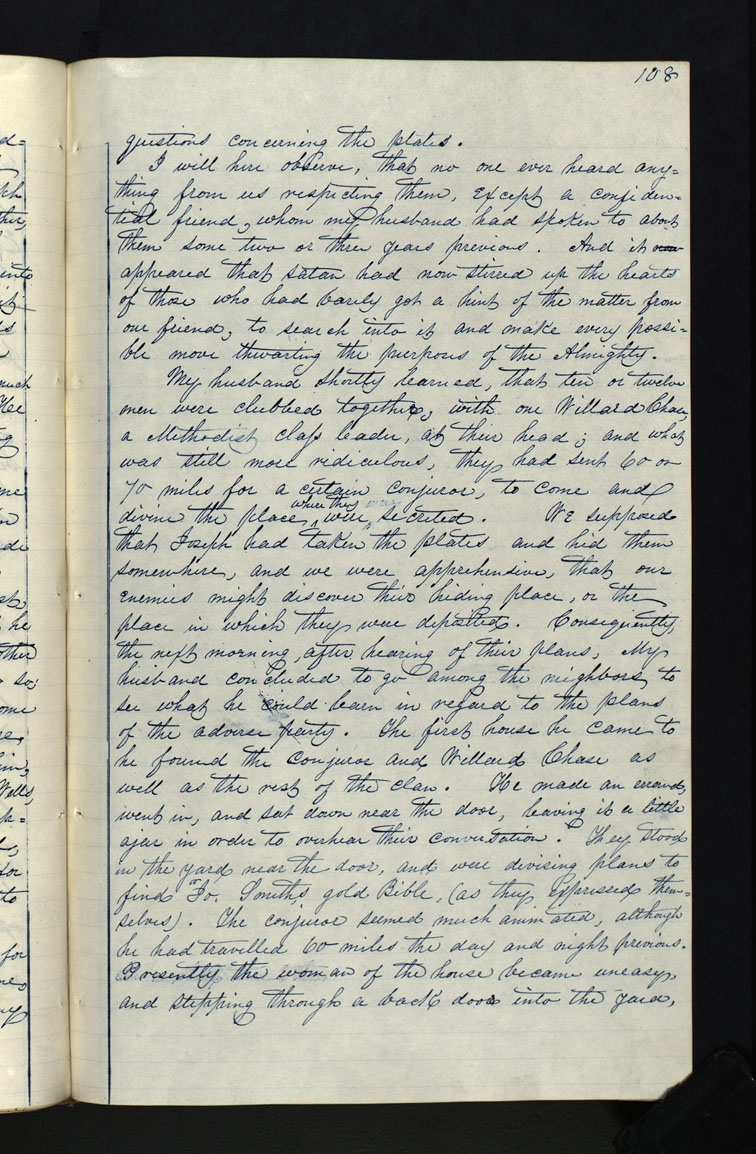 108
questions concerning the plates.
I will here observe, that no one ever heard any=
thing from us respecting them, except a confiden=
tial friend, whom my husband had spoken to about
them some two or three years previous. And it now
appeared that satan had now stirred up the hearts
of those who had barely got a hint of the matter from
our friend, to search into it and make every possi=
ble move thwarting the purposes of the Almighty.
My husband shortly learned, that ten or twelve
men were clubbed together, with one Willard Chase,
a Methodist class leader, at their head; and what
was still more ridiculous, they had sent 60 or
70 miles for a certain conjuror, to come and
where they
divine the place were secreted. We supposed
that Joseph had taken the plates and hid them
somewhere, and we were apprehensive, that our
enemies might discover their hiding place, or the
place in which they were deposited. Consequently,
the next morning, after hearing of their plans, My
husband concluded to go among the neighbors to
see what he could learn in regard to the plans
of the adverse party. The first house he came to
he found the conjuror and Willard Chase as
well as the rest of the clan. He made an errand,
went in, and sat down near the door, leaving it a little
ajar in order to overhear their conversation. They stood
in the yard near the door, and were divising plans to
find "Jo. Smith's gold Bible, (as they expressed them=
selves). The conjuror seemed much animated, although
he had travelled 60 miles the day and night previous.
Presently the woman of the house became uneasy,
and stepping through a back door into the yard,